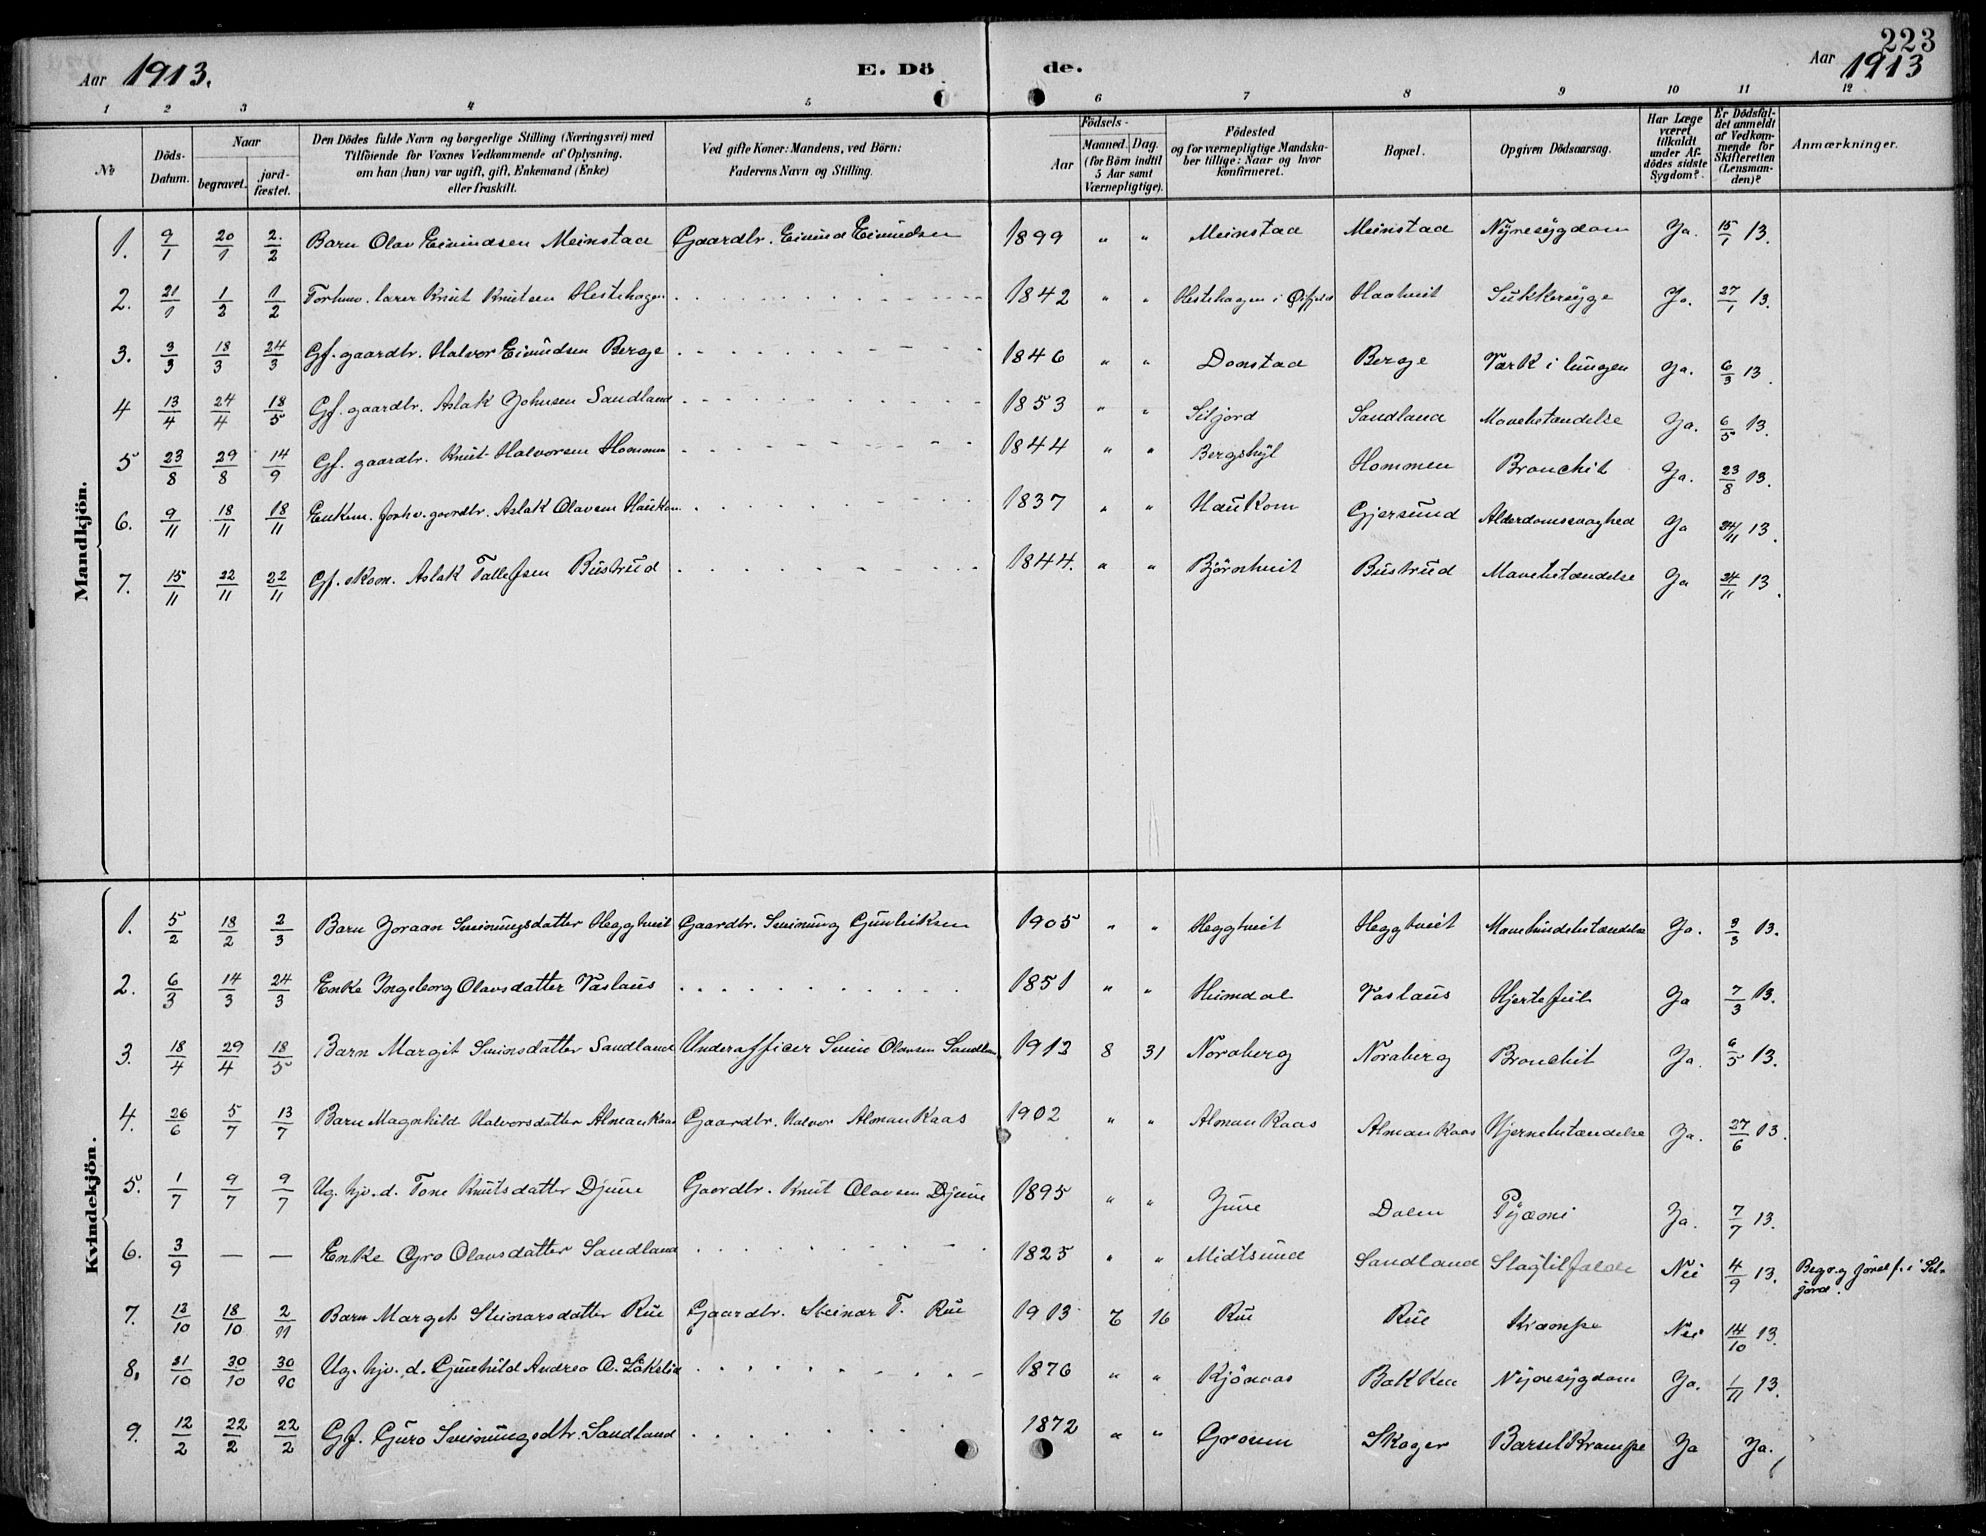 223
Aar 1913. E. Dö de. Aar 1913
1 2 3 4 5 6 7 8 9 10 11 12
№
Döds-Datum.
Naar
begravet. jordfæstet.
Den Dödes fulde Navn og borgerlige Stilling (Næringsvei) med
Tilföiende for Voxnes Vedkommende af Oplysning.
om han (hun) var ugift, gift, Enkemand (Enke)
eller fraskilt.
Ved gifte Koner: Mandens, ved Börn:
Faderens Navn og Stilling.
Födsels-
Aar Maaned. Dag.
(for Börn indtil
5 Aar samt
Værnepligtige).
Födested
og for værnepligtige Mandska-
ber tillige: Naar og hvor
konfirmeret.
Bopæl.
Opgiven Dödsaarsag.
Har Læge
været
tilkaldt
under Af-
dödes sidste
Sygdom?
Er Dödsfal-
det anmeldt
af Vedkom-
mende for
Skifteretten
(Lensman-
den)?
Anmærkninger.
Mandkjön.
1. 9/1 20/1 2/2 Barn Olav Eivindsen Meinstad Gaardbr. Eivind Eivindsen 1899 " " Meinstad Meinstad Nyresygdom Ja. 15/1 13.
2. 21/1 1/2 1/2 Forhenv. lærer Knut Knutsen Hestehagen 1842 " " Hestehagen i Haatveit Sukkersyge Ja. 27/1 13.
3. 3/3 18/3 24/3 Gf. gaardbr. Halvor Eivindsen Berge 1846 " " Donstad Berge Værk i lungen Ja. 6/3 13.
4 13/4 24/4 18/5 Gf. gaardbr. Aslak Johnsen Sandland 1853 " " Siljord Sandland Mavebetændelse Ja. 6/5 13.
5 23/8 29/8 14/9 Gf. gaardbr. Knut Halvorsen Hommen 1844 " " Bergshyl Hommen Bronchit Ja. 23/8 13.
6. 9/11 18/11 18/11 Enkem. forhv. gaardbr. Aslak Olavsen Haukom 1837 " " Haukom Gjersund Alderdomssvaghed Ja 24/11 13.
7. 15/11 22/11 22/11 Gf. skom. Aslak Tallefsen Bustrud 1844. " " Bjørntveit Bustrud Mavebetændelse Ja 24/11 13.
Kvindekjön.
1. 5/2 18/2 2/3 Barn Joraan Sveinungsdatter Heggtveit Gaardbr. Sveinung Gunleiksen 1905 " " Heggtveit Heggtveit Ja. 3/3 13.
2. 6/3 14/3 24/3 Enke Ingeborg Olavsdatter Vaslaus 1851 " " Heimdal Vaslaus Hjertefeil Ja 7/3 13.
3. 18/4 29/4 18/5 Barn Margit Sveinsdatter Sandland Underofficer Svein Olavsen Sandland 1912 8 31 Noraberg Noraberg Bronchit Ja. 6/5 13.
4. 26/6 5/7 13/7 Barn Magnhild Halvorsdatter Almankaas Gaardbr. Halvor Almankaas 1902 " " Almankaas Almankaas Hjernebetændelse Ja. 27/6 13.
5. 1/7 9/7 9/7 Ug. hjv. d. Tone Knutsdatter Djuve Gaardbr. Knut Olavsen Djuve 1895 " " Juve Dalen Pyæmi Ja. 7/7 13.
6. 3/9 — — Enke Gyro Olavsdatter Sandland 1825 " " Midtsund Sandland Slagtilfælde Nei 4/9 13. Begr. og jordf. i Sil-
jord.
7. 12/10 18/10 2/11 Barn Margit Steinarsdatter Rue Gaardbr. Steinar T. Rue 1913 7 16 Rue Rue Krampe Nei 14/10 13.
8. 21/10 30/10 30/10 Ug. hjv. d. Gunhild Andrea O. 1876 " " Kjönaas Bakken Nyresygdom Ja. 1/11 13.
9. 12/2 22/2 22/2 Gf. Guro Sveinungsdtr. Sandland 1872 " " Groven Skoger Barselkrampe Ja Ja.